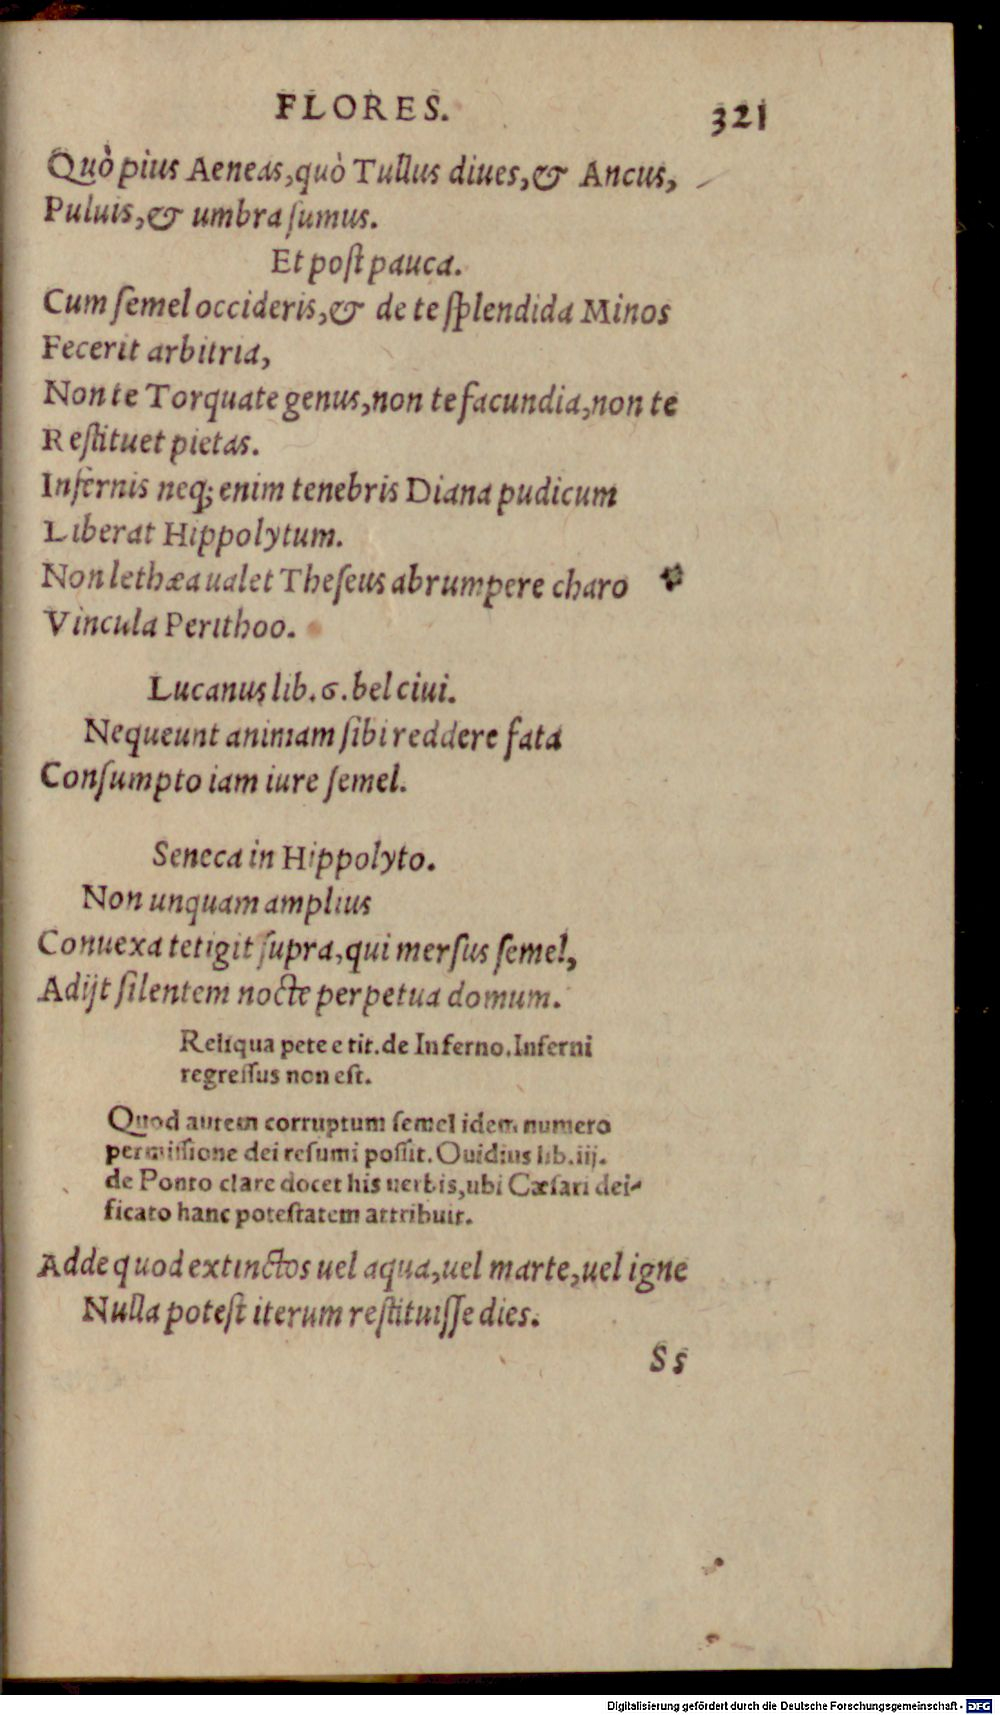 FLORES. 321
Quò pius Aeneas, quò Tullus diues, & Ancus,
Puluis, & umbra ſumus.
Et poſt pauca.
Cum ſemel occideris, & de te ſplendida Minos
Fecerit arbitria,
Non te Torquate genus, non te facundia, non te
Reſtituet pietas.
Infernis neq; enim tenebris Diana pudicum
Liberat Hippolytum.
Non lethæa ualet Theſeus abrumpere charo
Vincula Perithoo.
Lucanus lib. 6. bel ciui.
Nequeunt animam ſibi reddere fata
Conſumpto iam iure ſemel.
Seneca in Hippolyto.
Non unquam amplius
Conuexa tetigit ſupra, qui merſus ſemel,
Adijt ſilentem nocte perpetua domum.
Reliqua pete e tit. de Inferno. Inferni
regreſſus non eſt.
Quod autem corruptum ſemel idem numero
permiſſione dei reſumi poſſit. Ouidius lib. iij.
de Ponto clare docet his uerbis, ubi Cæſari dei-
ficato hanc poteſtatem attribuit.
Adde quod extinctos uel aqua, uel marte, uel igne
Nulla poteſt iterum reſtituiſſe dies.
Ss
Digitalisierung gefördert durch die Deutsche Forschungsgemeinschaft - DFG